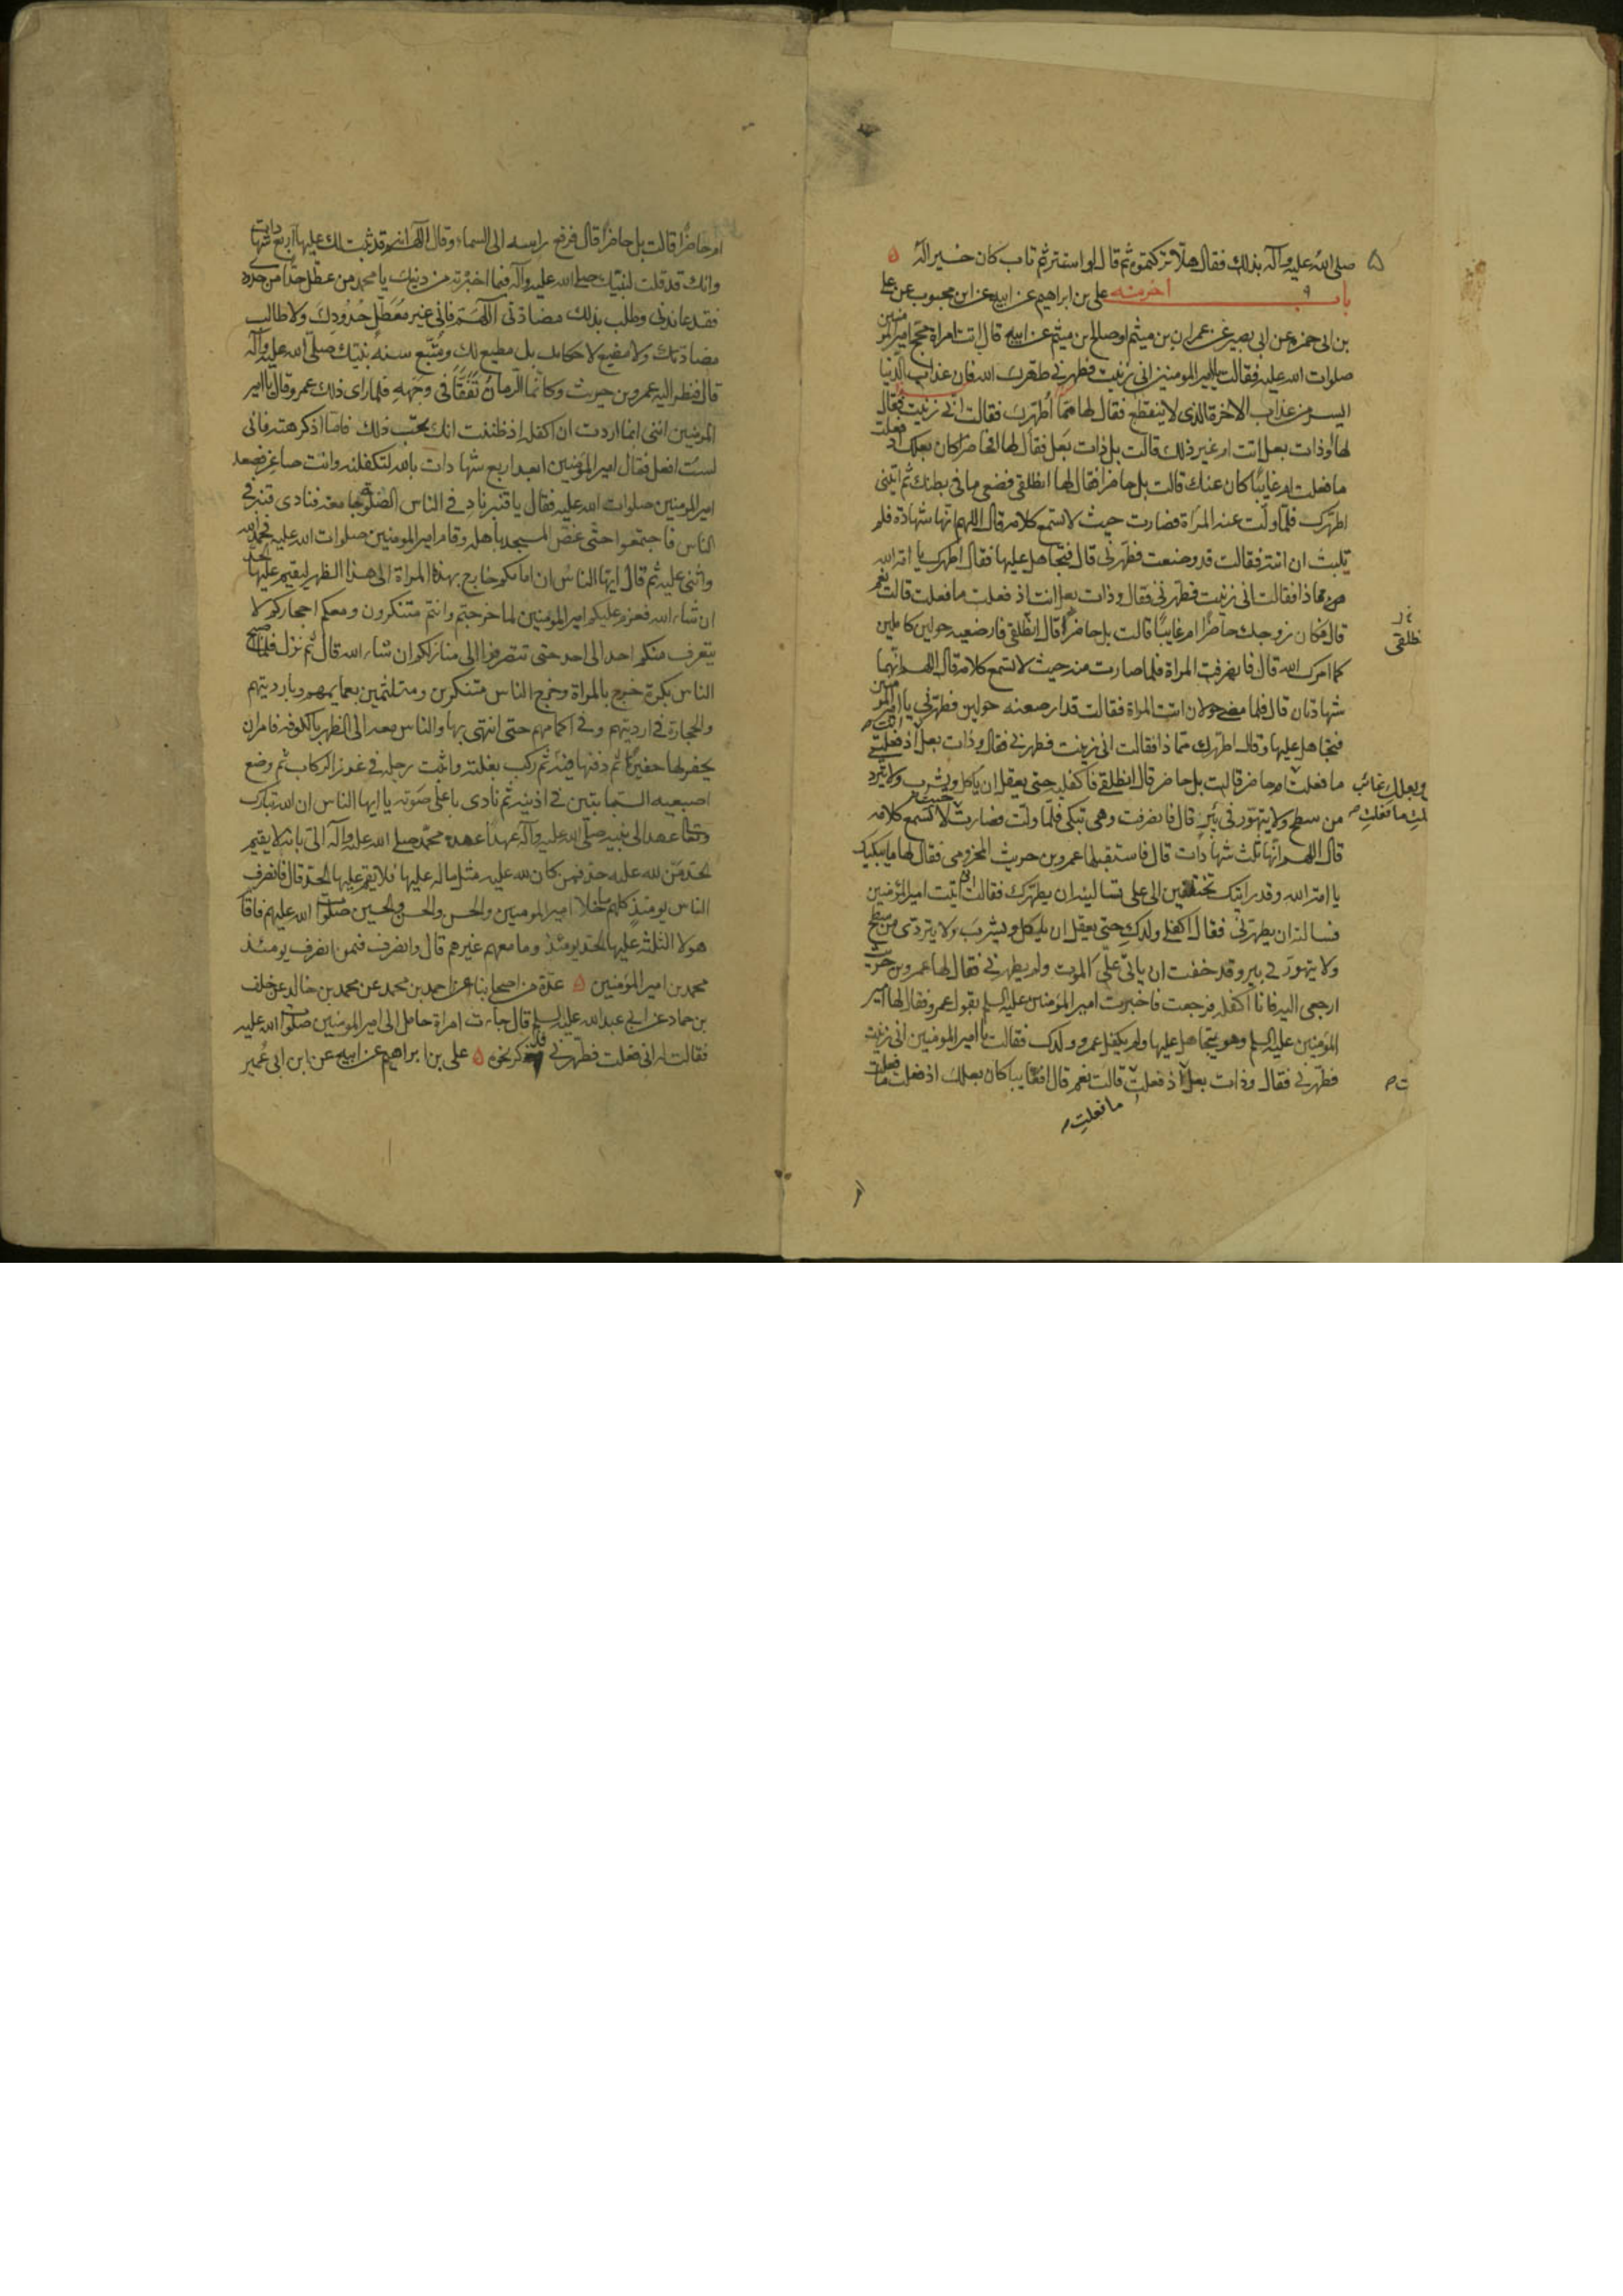 صلى الله عليه وآله بذلك فقال هلا تركتموه ثم قال لو استتر ثم تاب كان خيرا له
باب آخر منه علي بن ابراهيم عن ابيه عن ابن محبوب عن علي
بن ابي حمزه عن ابي بصير عن عمران بن ميثم او صالح بن ميثم عن ابيه قال اتت امراة مجح امير المؤمنين
صلوات الله عليه فقالت يا امير المومنين اني زنيت فطهرني طهرك الله فان عذاب الدنيا
ايسر من عذاب الاخرة الذي لا ينقطع فقال لها مما اطهرك فقالت اني زنيت فقال
لها اوذات بعل انت ام غير ذلك قالت بل ذات بعل فقال لها افحاضرا كان بعلك اذ فعلت
ما فعلت ام غايبا كان عنك قالت بل حاضرا فقال لها انطلقي فضعي ما في بطنك ثم ايتني
اطهرك فلما ولت عنه المراة فصارت حيث لا تسمع كلامه قال اللهم انها شهادة فلم
يلبث ان اتته فقالت قد وضعت فطهرني قال فتجاهل عليها فقال اطهرك يا امة الله
مماذا فقالت اني زنيت فطهرني فقال وذات بعل انت اذ فعلت ما فعلت قالت نعم
قال فكان زوجك حاضرا ام غايبا قالت بل حاضرا قال انطلقي فارضعيه حولين كاملين
كما امرك الله قال فانصرفت المراة فلما صارت منه حيث لا تسمع كلامه قال اللهم انهما
شهادتان قال فلما مضى حولان اتت المراة فقالت قد ارضعته حولين فطهرني يا امير المؤمنين
فتجاهل عليها وقال اطهرك مماذا فقالت اني زنيت فطهرني فقال وذات بعل انت اذ فعلت
ما فعلت ام حاضر قالت بل حاضر قال انطلقي فاكفليه حتى يعقل ان ياكل ويشرب ولا يتردى
وبعلك غائب
من سطح ولا يتهور في بئر قال فانصرفت وهي تبكي فلما ولت فصارت حيث لا تسمع كلامه
قال اللهم انها ثلث شهادات قال فاستقبلها عمرو بن حريث المخزومي فقال لها ما يبكيك
يا امة الله وقد رايتك تختلفين الى علي تسالينه ان يطهرك فقالت اني اتيت امير المؤمنين
فسالته ان يطهرني فقال اكفلي ولدك حتى يعقل ان ياكل ويشرب ولا يتردى من سطح
ولا يتهور في بير وقد خفت ان ياتي علي الموت ولم يطهرني فقال لها عمرو بن حريث
ارجعي اليه فانا اكفله فرجعت فاخبرت امير المؤمنين عليه السلم بقول عمرو فقال لها امير
المؤمنين عليه السلم وهو يتجاهل عليها ولم يكفل عمرو ولدك فقالت يا امير المومنين اني زنيت
فطهرني فقال وذات بعل اذ فعلت قالت نعم قال افغايبا كان بعلك اذ فعلت ما فعلت
ما فعلت
ام حاضرا قالت بل حاضرا قال فرفع راسه الى السماء وقال اللهم انه قد ثبت لك عليها اربع شهادات
وانك قد قلت لنبيك صلى الله عليه وآله فيما اخبرته من دينك يا محمد من عطل حدا من حدودي
فقد عاندني وطلب بذلك مضادتي اللهم فاني غير معطل حدودك ولا طالب
مضادتك ولا مضيع لاحكامك بل مطيع لك ومتبع سنة نبيك صلى الله عليه وآله
قال فنظر اليه عمرو بن حريث وكانما الرمان تفقأ في وجهه فلما راى ذلك عمرو قال يا امير
المؤمنين انني انما اردت ان اكفله اذ ظننت انك تحب ذلك فاما اذ كرهته فاني
لست افعل فقال امير المؤمنين ابعد اربع شهادات بالله لتكفلنه وانت صاغر فصعد
امير المومنين صلوات الله عليه فقال يا قنبر ناد في الناس الصلوة جامعة فنادى قنبر في
الناس فاجتمعوا حتى غص المسجد باهله وقام امير المومنين صلوات الله عليه فحمد الله
واثنى عليه ثم قال ايها الناس ان امامكم خارج بهذه المراة الى هذا الظهر ليقيم عليها الحد
ان شاء الله فعزم عليكم امير المؤمنين لما خرجتم وانتم متنكرون ومعكم احجاركم لا
يتعرف منكم احد الى احد حتى تنصرفوا الى منازلكم ان شاء الله قال ثم نزل فلما اصبح
الناس بكرة خرج بالمراة وخرج الناس متنكرين ومتلثمين بعمايمهم وبارديتهم
والحجارة في ارديتهم وفي اكمامهم حتى انتهى بها والناس معه الى الظهر بالكوفه فامر ان
يحفر لها حفيرة ثم دفنها فيه ثم ركب بغلته واثبت رجله في غرز الركاب ثم وضع
اصبعيه السبابتين في اذنيه ثم نادى باعلى صوته يا ايها الناس ان الله تبارك
وتعالى عهد الى نبيه صلى الله عليه وآله عهدا عهده محمد صلى الله عليه وآله الي بانه لا يقيم
الحد من لله عليه حد فمن كان لله عليه مثل ماله عليها فلا يقم عليها الحد قال فانصرف
الناس يومئذ كلهم ما خلا امير المومنين والحسن والحسين صلوات الله عليهم فاقام
هولا الثلثه عليها الحد يومئذ وما معهم غيرهم قال وانصرف فيمن انصرف يومئذ
محمد بن امير المؤمنين عدة من اصحابنا عن احمد بن محمد عن محمد بن خالد عن خلف
بن حماد عن ابي عبد الله عليه السلم قال جاءت امراة حامل الى امير المومنين صلوات الله عليه
فقالت له اني فعلت فطهرني فذكر نحوه علي بن ابراهيم عن ابيه عن ابن ابي عمير